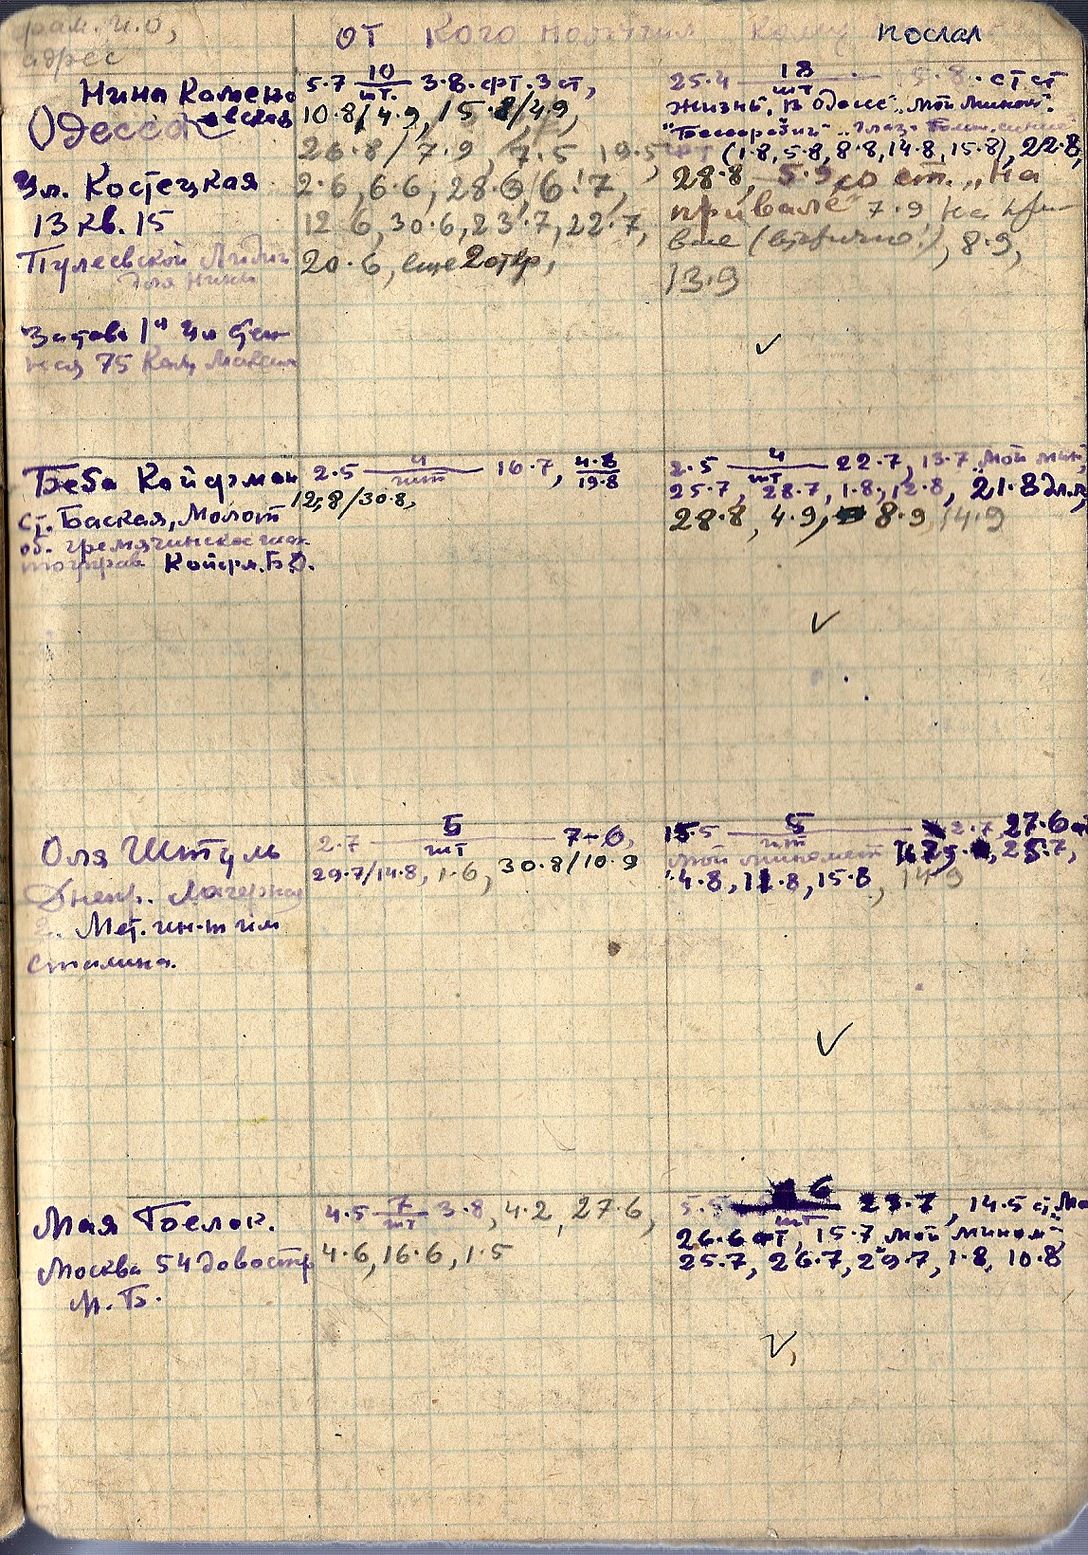 фам. И.О,
адрес
от кого получил
кому послал
Нина Камено
вская
Одесса
Ул. Костецкая
13 кв. 15
для Нины
5.7 10 шт. 3.8. фт. 3 ст,
10.8/4.9, 15.8/4.9,
26.8/7.9, 7.5 19.5,
2.6, 6.6, 28.6, 6.7,
12.6, 30.6, 23.7, 22.7,
20.6, еще 2 отвр,
25.4 18 шт 5.8. ст ст
жизнь, в Одесс. "мой миномt"
(1.8, 5.8, 8.8, 14.8, 15.8), 22.8,
28.8, 5.9 со ст. "На
привале" 7.9 На
(вторично!), 8.9,
13.9
Беба Койфман
ст. Баская, Молот
об. гремячинское шах
тоуправ Койфм. Б.О.
2.5 4 шт 16.7, 4.8/19.8
12.8/30.8,
2.5 4 шт 22.7, 13.7 "мой мин,
25.7, 28.7, 1.8, 12.8, 21.8 дл.п,
28.8, 4.9, 8.9 14.9
Оля Штуль
Днепр. Лагерная
2. Мет. ин-т им
Сталина.
2.7 5 шт 7-6,
29.7/14.8, 1.6, 30.8/10.9
15.5 5 шт 2.7, 27.6
мой миномет 25.7,
4.8, 11.8, 15.8, 14.9
Мая Гоелок.
Москва 54 довостр
М. Б.
4.5 7 шт 3.8, 4.2, 27.6,
4.6, 16.6, 1.5
5.5 6 шт 23.7, 14.5
26.6 фт, 15.7 мой миномt",
25.7, 26.7, 29.7, 1.8, 10.8